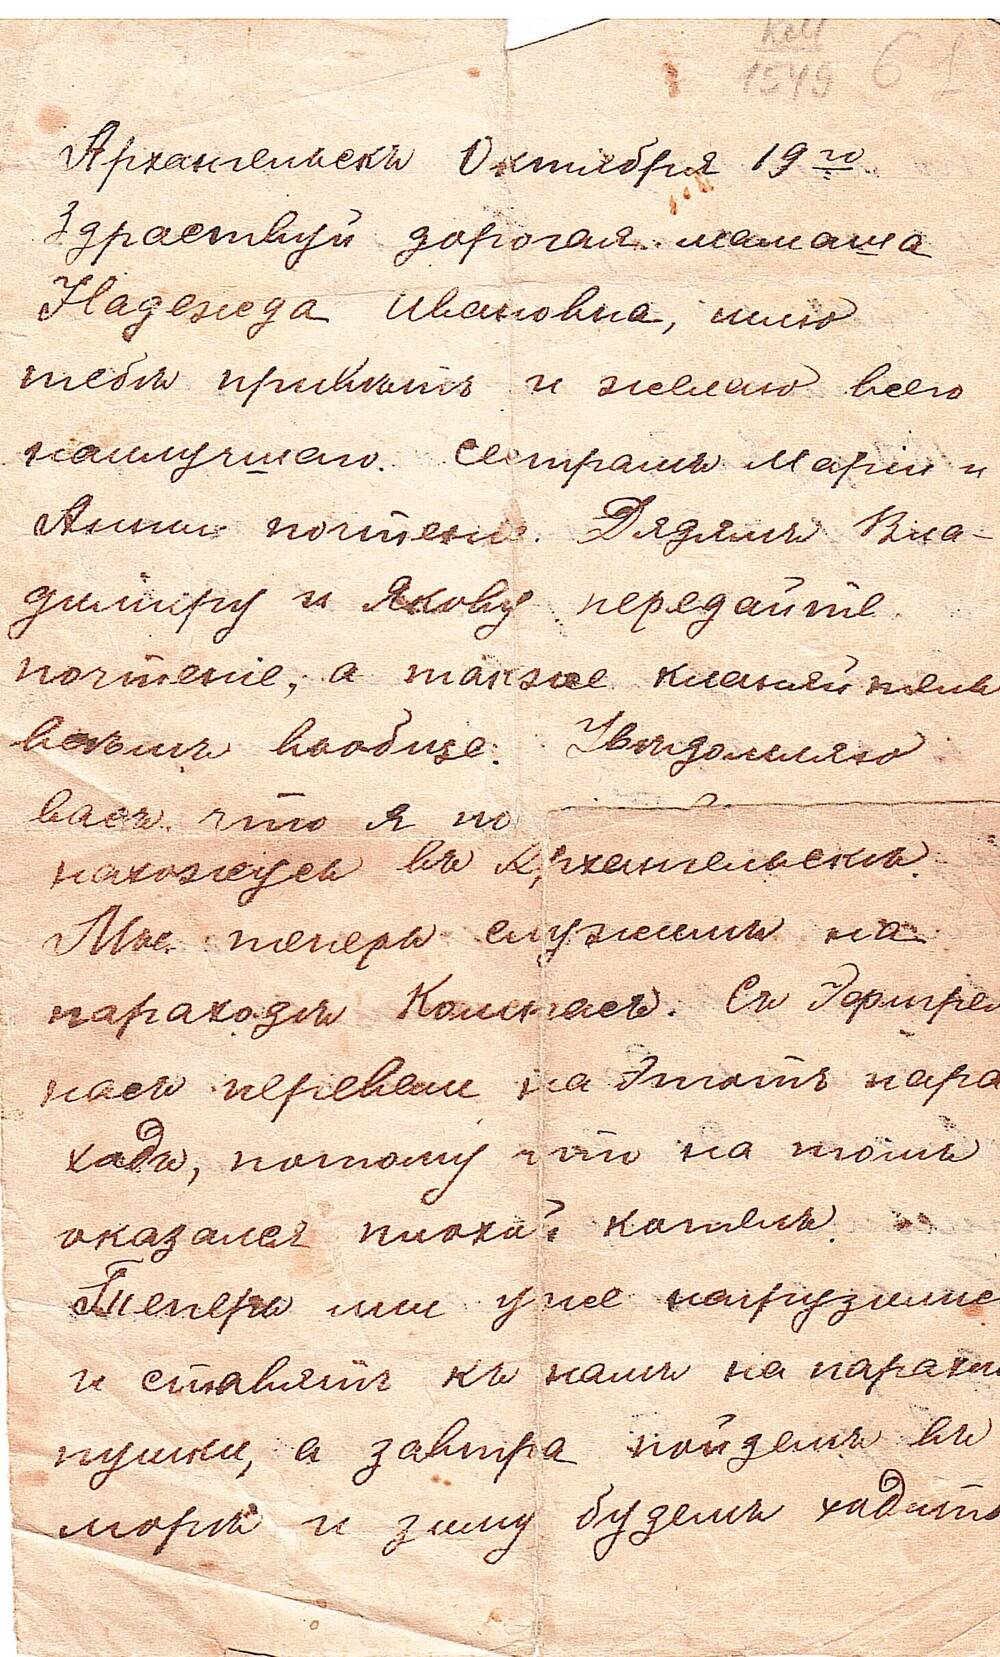 КМ
1549 6 1
Архангельскъ Октября 19го
Здраствуй дорогая мамаша
Надежда Ивановна, шлю
тебѣ привѣтъ и желаю всего
наилучшаго. Сестрамъ Маріи и
Аннѣ почтеніе. Дядямъ Вла-
димиру и Якову передайте
почтеніе, а также кланяйтесь
всѣмъ вообще. Увѣдомляю
васъ что я по
нахожусь въ Архангельскѣ.
Мы теперь служимъ на
параходѣ Компасъ. Съ
насъ перевели на этотъ пара
ходъ, потому что на томъ
оказался плохой котелъ.
Теперь мы уже нагрузились
и ставятъ къ намъ на параход
пушки, а завтра пойдемъ въ
морѣ и зиму будемъ ходить